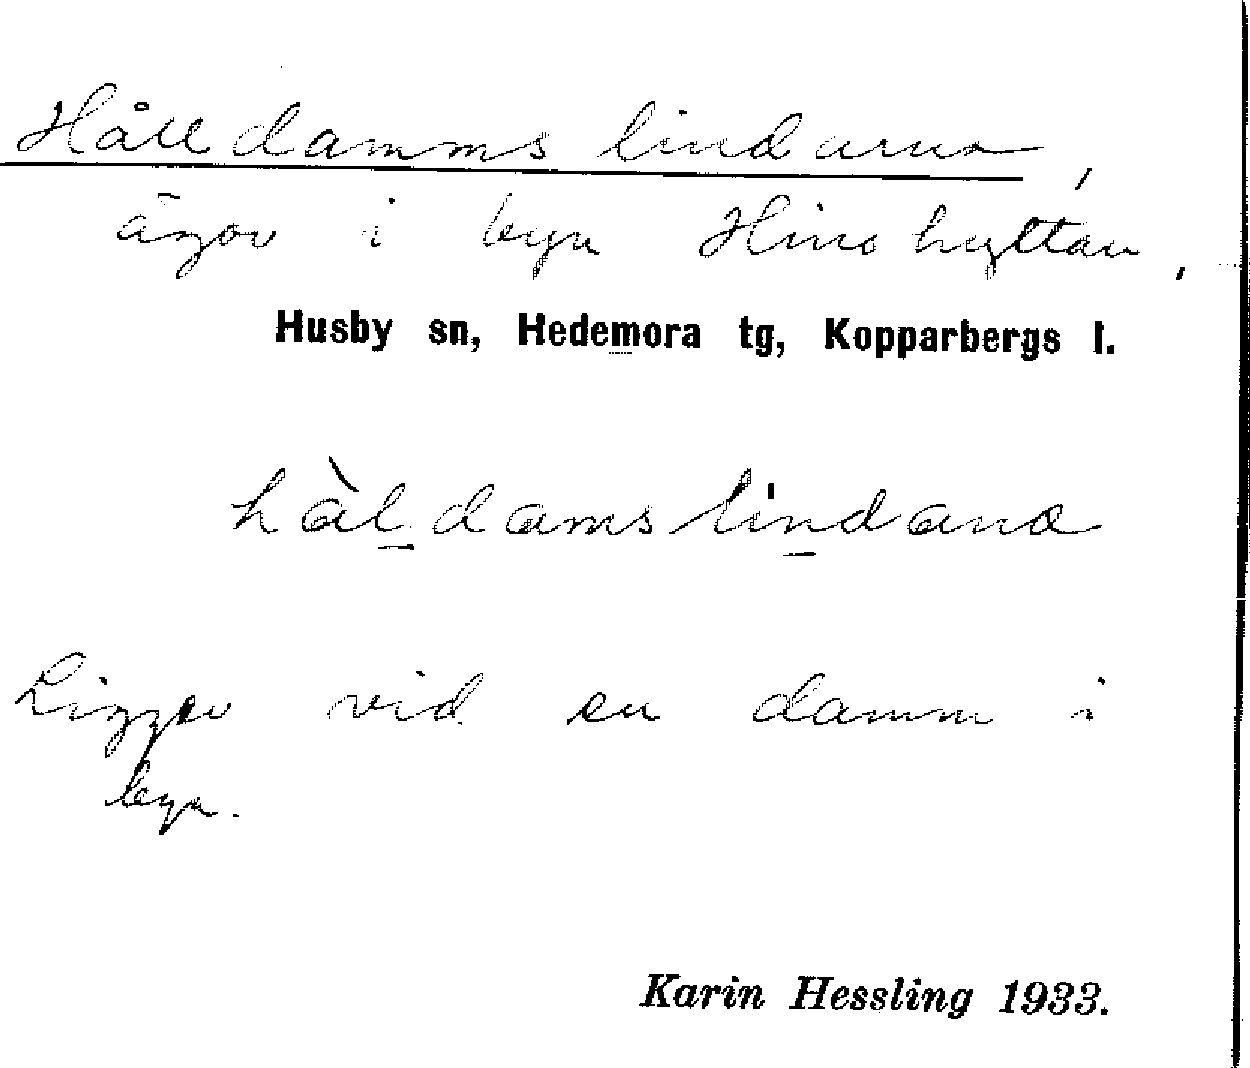 Hålldammslindarna,
ägor i byn Hinshyttan,
Husby sn, Hedemora tg, Kopparbergs l.
hàl̠damslin̠dana
Ligger vid en damm i
byn.
Karin Hessling 1933.